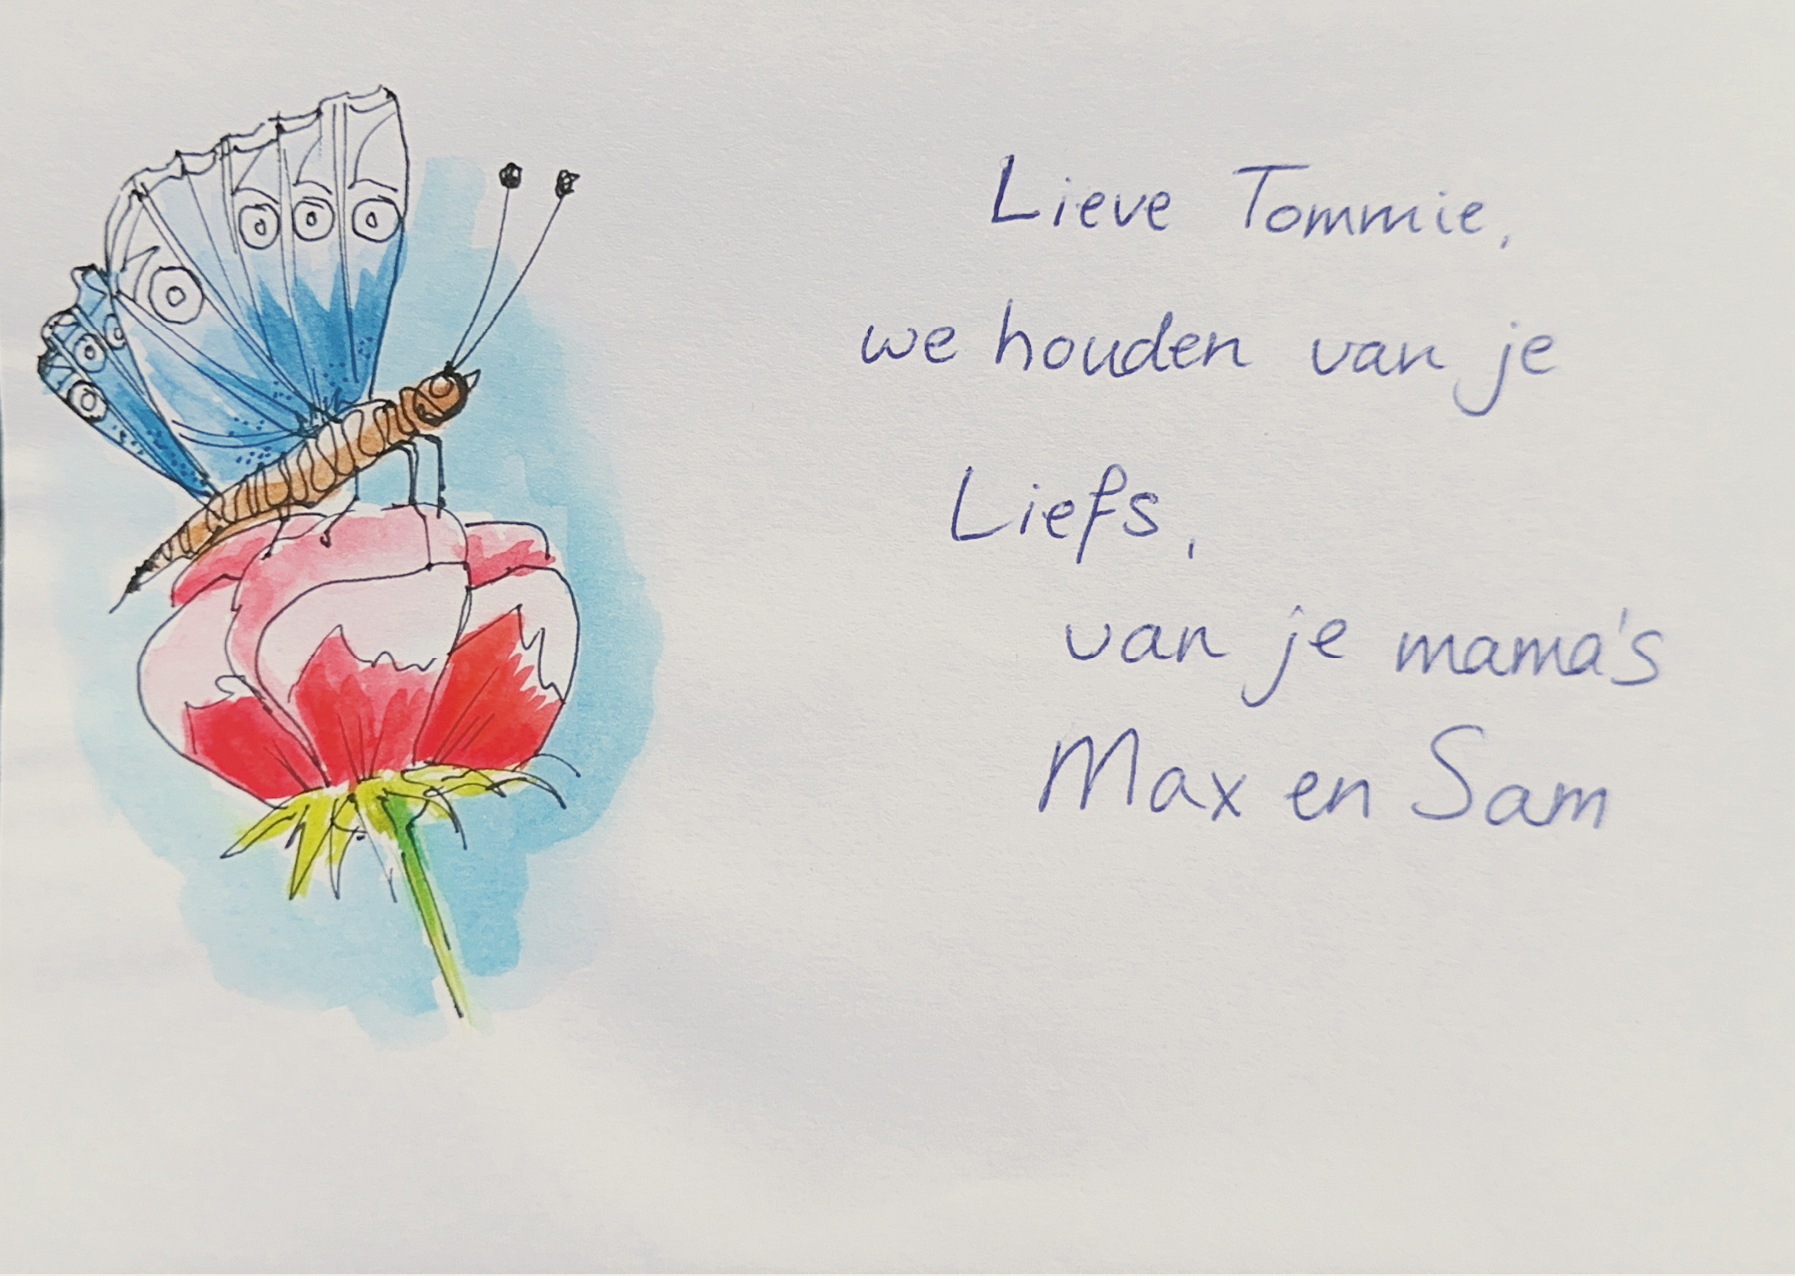 Lieve Tommie,
we houden van je
Liefs,
van je mama's
Max en Sam